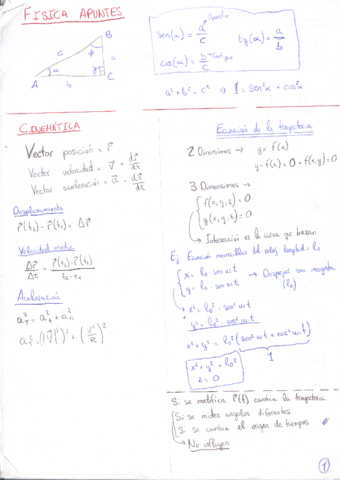 FISICA APUNTES
B
c
a
A
α
b
C
sen(α) = a/c → Opuesto
cos(α) = b/c → Contiguo
tg(α) = a/b
a² + b² = c² ⇒ 1 = sen²α + cos²α
CINEMÁTICA
Vector posición = r⃗
Vector velocidad = v⃗ = dr⃗/dt
Vector aceleración = a⃗ = dv⃗/dt
Desplazamiento
r⃗(t₂) - r⃗(t₁) = Δr⃗
Velocidad media
Δr⃗/Δt = (r⃗(t₂) - r⃗(t₁))/(t₂ - t₁)
Aceleración
Ecuación de la trayectoria
2 Dimensiones → y = f(x)
y - f(x) = 0 = f(x,y) = 0
3 Dimensiones →
f(x,y,z) = 0
g(x,y,z) = 0
↳ Intersección es la curva que buscan
x = l₀ · sen ωt
→ Despejar una incógnita
(l₀)
x² = l₀² · sen² ωt
y² = l₀² cos² ωt
x² + y² = l₀² (sen² ωt + cos² ωt)
1
x² + y² = l₀²
z = 0
Si se modifica r⃗(t) cambia la trayectoria
Si se miden angulos diferentes
Si se cambia el origen de tiempos
↳ No influyen
1